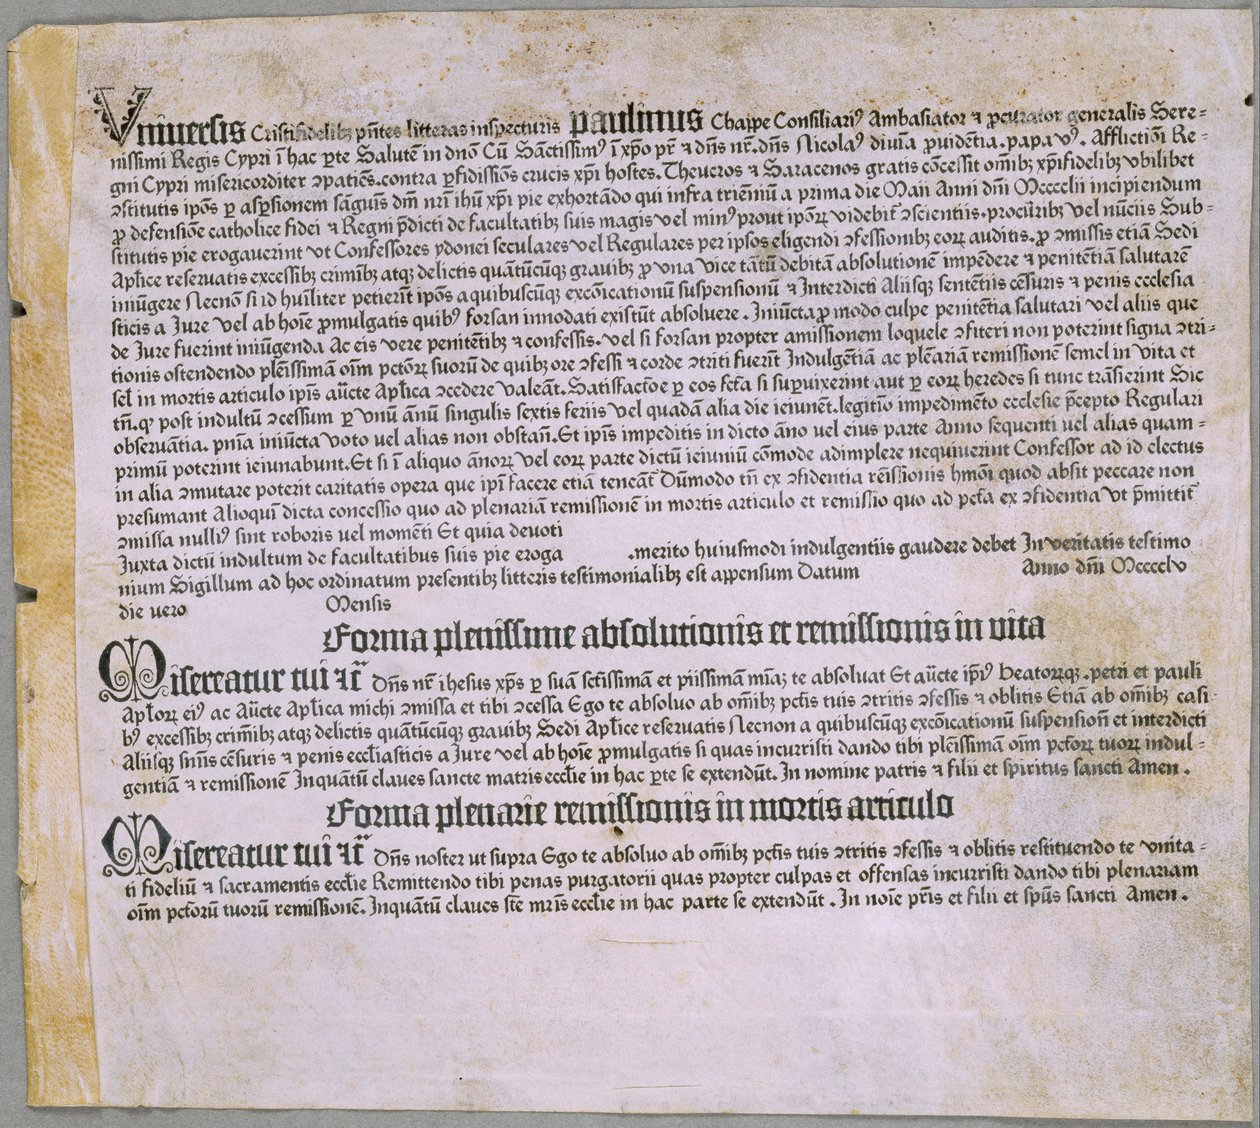 Vniuersis Cristifidelibꝫ pñtes litteras inspecturis Paulinus Chappe Consiliariꝰ Ambasiator ⁊ ꝓcurator generalis Sere-
nissimi Regis Cypri ī hac ꝑte Salutē in dnō Cū Sāctissimꝰ ī xp̄o pr̄ ⁊ dn̄s nr̄. dn̄s Nicolaꝰ diuīa ꝓuidētia. papa vꝰ. Afflictiōi Re-
gni Cypri misericorditer ꝯpatiēs. contra ꝑfidissiōs crucis xp̄i hostes. Theucros ⁊ Saracenos gratis cōcessit om̄ibꝫ xp̄ifidelibꝫ vbilibet
ꝯstitutis ip̄os ꝑ asꝑsionem sāguis dm̄ nr̄i ihū xp̄i pie exhortādo qui infra trienniū a prima die Maii Anni dn̄i Mcccclii incipiendum
ꝓ defensiōe catholice fidei ⁊ Regni p̄dicti de facultatibꝫ suis magis vel minꝰ prout ip̄oꝝ videbit̄ ꝯscientiis. procūribꝫ vel nūciis Sub-
stitutis pie erogauerint vt Confessores ydonei seculares vel Regulares per ipsos eligendi ꝯfessionibꝫ eoꝝ auditis. ꝓ ꝯmissis etiā Sedi
Apl̄ice reseruatis excessibꝫ crimībꝫ atqꝫ delictis quātūcūqꝫ grauibꝫ ꝓ vna vice tātū debitā absolutionē impēdere ⁊ penitētiā salutarē
iniūgere Necnō si id hūiliter petierīt ip̄os a quibuscūqꝫ excōicationū suspensionū ⁊ Interdicti Aliisqꝫ sentētiis cēsuris ⁊ penis ecclesia
sticis a Iure vel ab hoīe ꝓmulgatis quibꝰ forsan innodati existūt absoluere. Iniūcta ꝓ modo culpe penitētia salutari vel aliis que
de Iure fuerint iniūgenda Ac eis vere penitētibꝫ ⁊ confessis. vel si forsan propter amissionem loquele ꝯfiteri non poterint signa ꝯtri-
tionis ostendendo plēissimā oīm pctōꝝ suoꝝ de quibꝫ ore ꝯfessi ⁊ corde ꝯtriti fuerīt Indulgētiā ac plēariā remissionē semel in vita et
sel̄ in mortis articulo ip̄is aūcte Apl̄ica ꝯcedere valeāt. Satisfactōe ꝑ eos fc̄ta si suꝑuixerint aut ꝑ eoꝝ heredes si tunc trāsierint Sic
tn̄. qꝫ post indultū ꝯcessum ꝑ vnū ānū singulis sextis feriis vel quadā alia die ieiunēt. legitīo impedimēto ecclesie p̄cepto Regulari
obseruātia. pnīa iniūcta voto uel alias non obstañ. Et ip̄is impeditis in dicto āno uel eius parte Anno sequenti uel alias quam-
primū poterint ieiunabunt. Et si ī aliquo ānoꝝ vel eoꝝ parte dictū ieiuniū cōmode adimplere nequiuerint Confessor ad id electus
in alia ꝯmutare poterit caritatis opera que ip̄i facere etiā teneāt̄ Dūmodo tn̄ ex ꝯfidentia rēissionis hmōi quod absit peccare non
presumant Alioquī dicta concessio quo ad plenariā remissionē in mortis articulo et remissio quo ad pctā ex ꝯfidentia vt p̄mittit̄
ꝯmissa nulliꝰ sint roboris uel momēti Et quia deuoti
Iuxta dictū indultum de facultatibus suis pie eroga .merito huiusmodi indulgentiis gaudere debet In veritatis testimo
nium Sigillum ad hoc ordinatum presentibꝫ litteris testimonialibꝫ est appensum Datum Anno dn̄i Mcccclv
die uero Mensis
Forma plenissime absolutionis et remissionis in vita
Misereatur tui ⁊c̄ Dn̄s nr̄ ihesus xp̄s ꝑ suā sctīssimā et piissimā mīaꝫ te absoluat Et aūcte ip̄iꝰ beatoꝝqꝫ. petri et pauli
Apl̄oꝝ eiꝰ ac Aūcte Apl̄ica michi ꝯmissa et tibi ꝯcessa Ego te absoluo ab om̄ibꝫ pctīs tuis ꝯtritis ꝯfessis ⁊ oblitis Etiā ab om̄ibꝫ casi-
bꝰ excessibꝫ crim̄ibꝫ atqꝫ delictis quātūcūqꝫ grauibꝫ Sedi Apl̄ice reseruatis Necnon a quibuscūqꝫ excōicationū suspensioñ et interdicti
Aliisqꝫ snīis cēsuris ⁊ penis eccl̄iasticis a Iure vel ab hoīe ꝓmulgatis si quas incurristi dando tibi plēissimā oīm pctōꝝ tuoꝝ indul-
gentiā ⁊ remissionē Inquātū claues sancte matris eccl̄ie in hac ꝑte se extendūt. In nomine patris ⁊ filii et spiritus sancti Amen.
Forma plenarie remissionis in mortis articulo
Misereatur tui ⁊c̄ Dn̄s noster ut supra Ego te absoluo ab om̄ibꝫ pctīs tuis ꝯtritis ꝯfessis ⁊ oblitis restituendo te vnita-
ti fideliū ⁊ sacramentis eccl̄ie Remittendo tibi penas purgatorii quas propter culpas et offensas incurristi dando tibi plenariam
oīm pctōrū tuorū remissionē. Inquātū claues sctē mr̄is eccl̄ie in hac parte se extendūt. In noīe pr̄is et filii et sp̄us sancti Amen.